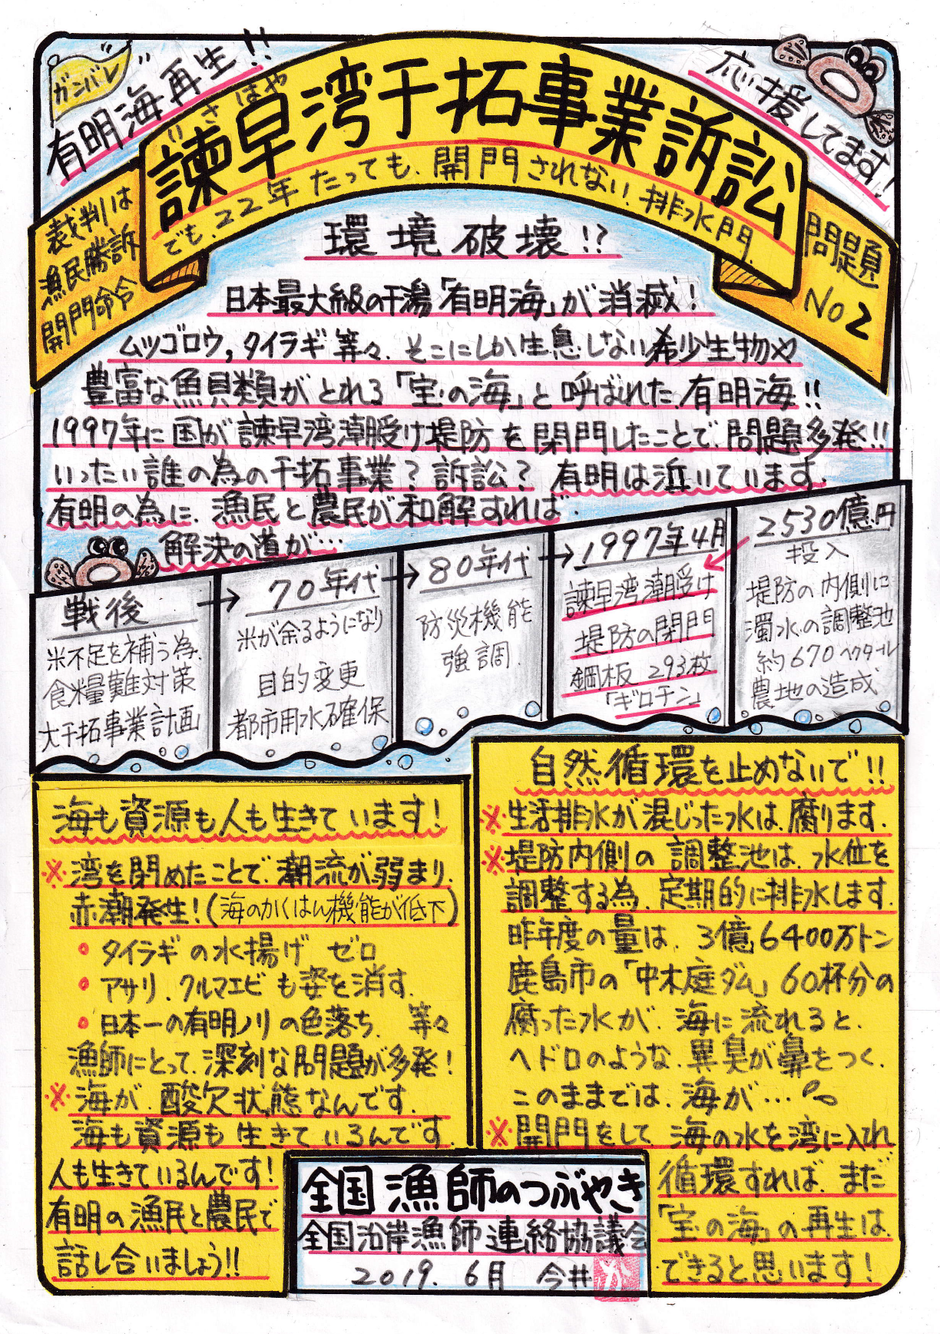 ガンバレ
有明海再生!!
応援してます!
いさはや
諫早湾干拓事業訴訟
でも、22年たっても、開門されない、排水門、
裁判は
漁民勝訴
開門命令
問題
No2
環境破壊!?
日本最大級の干潟「有明海」が消滅!
ムツゴロウ,タイラギ等々、そこにしか生息しない希少生物や
豊富な魚貝類がとれる「宝の海」と呼ばれた有明海!!
1997年に国が諫早湾潮受け堤防を閉門したことで、問題多発!!
いったい誰の為の干拓事業?訴訟?有明は泣いています。
有明の為に、漁民と農民が和解すれば、
解決の道が…
戦後
米不足を補う為、
食糧難対策
大干拓事業計画
→70年代
米が余るようになり
目的変更
都市用水確保
→80年代
防災機能
強調
→1997年4月
諫早湾潮受け
堤防の閉門
鋼板 293枚
「ギロチン」
2530億円
投入
堤防の内側に
濁水の調整池
約670ヘクタール
農地の造成
海も資源も人も生きています!
※湾を閉めたことで、潮流が弱まり、
赤潮発生!(海のかくはん機能が低下)
• タイラギの水揚げ ゼロ
• アサリ、クルマエビも姿を消す。
• 日本一の有明ノリの色落ち、等々
漁師にとって、深刻な問題が多発!
※海が 酸欠状態なんです。
海も資源も生きているんです。
人も生きているんです!
有明の漁民と農民で
話し合いましょう!!
自然循環を止めないで!!
※生活排水が混じった水は、腐ります。
※堤防内側の調整池は、水位を
調整する為、定期的に排水します。
昨年度の量は、3億6400万トン
鹿島市の「中木庭ダム」60杯分の
腐った水が、海に流れると、
ヘドロのような、異臭が鼻をつく、
このままでは、海が…
※開門をして、海の水を湾に入れ
循環すれば、まだ
「宝の海」の再生は
できると思います!
全国漁師のつぶやき
全国沿岸漁師連絡協議会
2019. 6月 今井
か